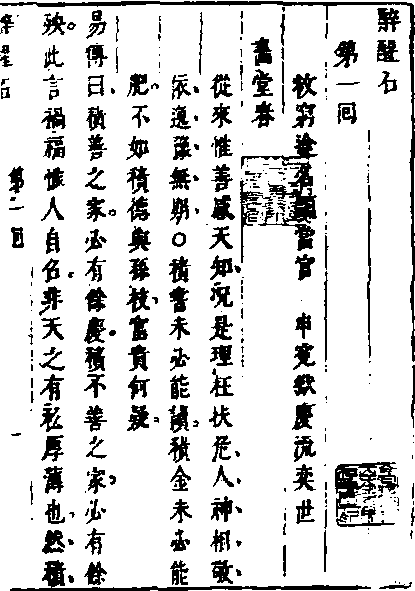 醉醒石
第一回
救窮途名顯當官　申冤獄慶流奕世
畫堂春
從來惟善感天知、況是理枉扶危、人、神相敬、
依逸豫無期○積書未必能讀、積金未必能
肥、不如積德與孫枝、富貴何疑、
易傳曰、積善之家、必有餘慶、積不善之家、必有餘
殃、此言禍福惟人自召、非天之有私厚薄也、然積、
醉醒石
第一回
一